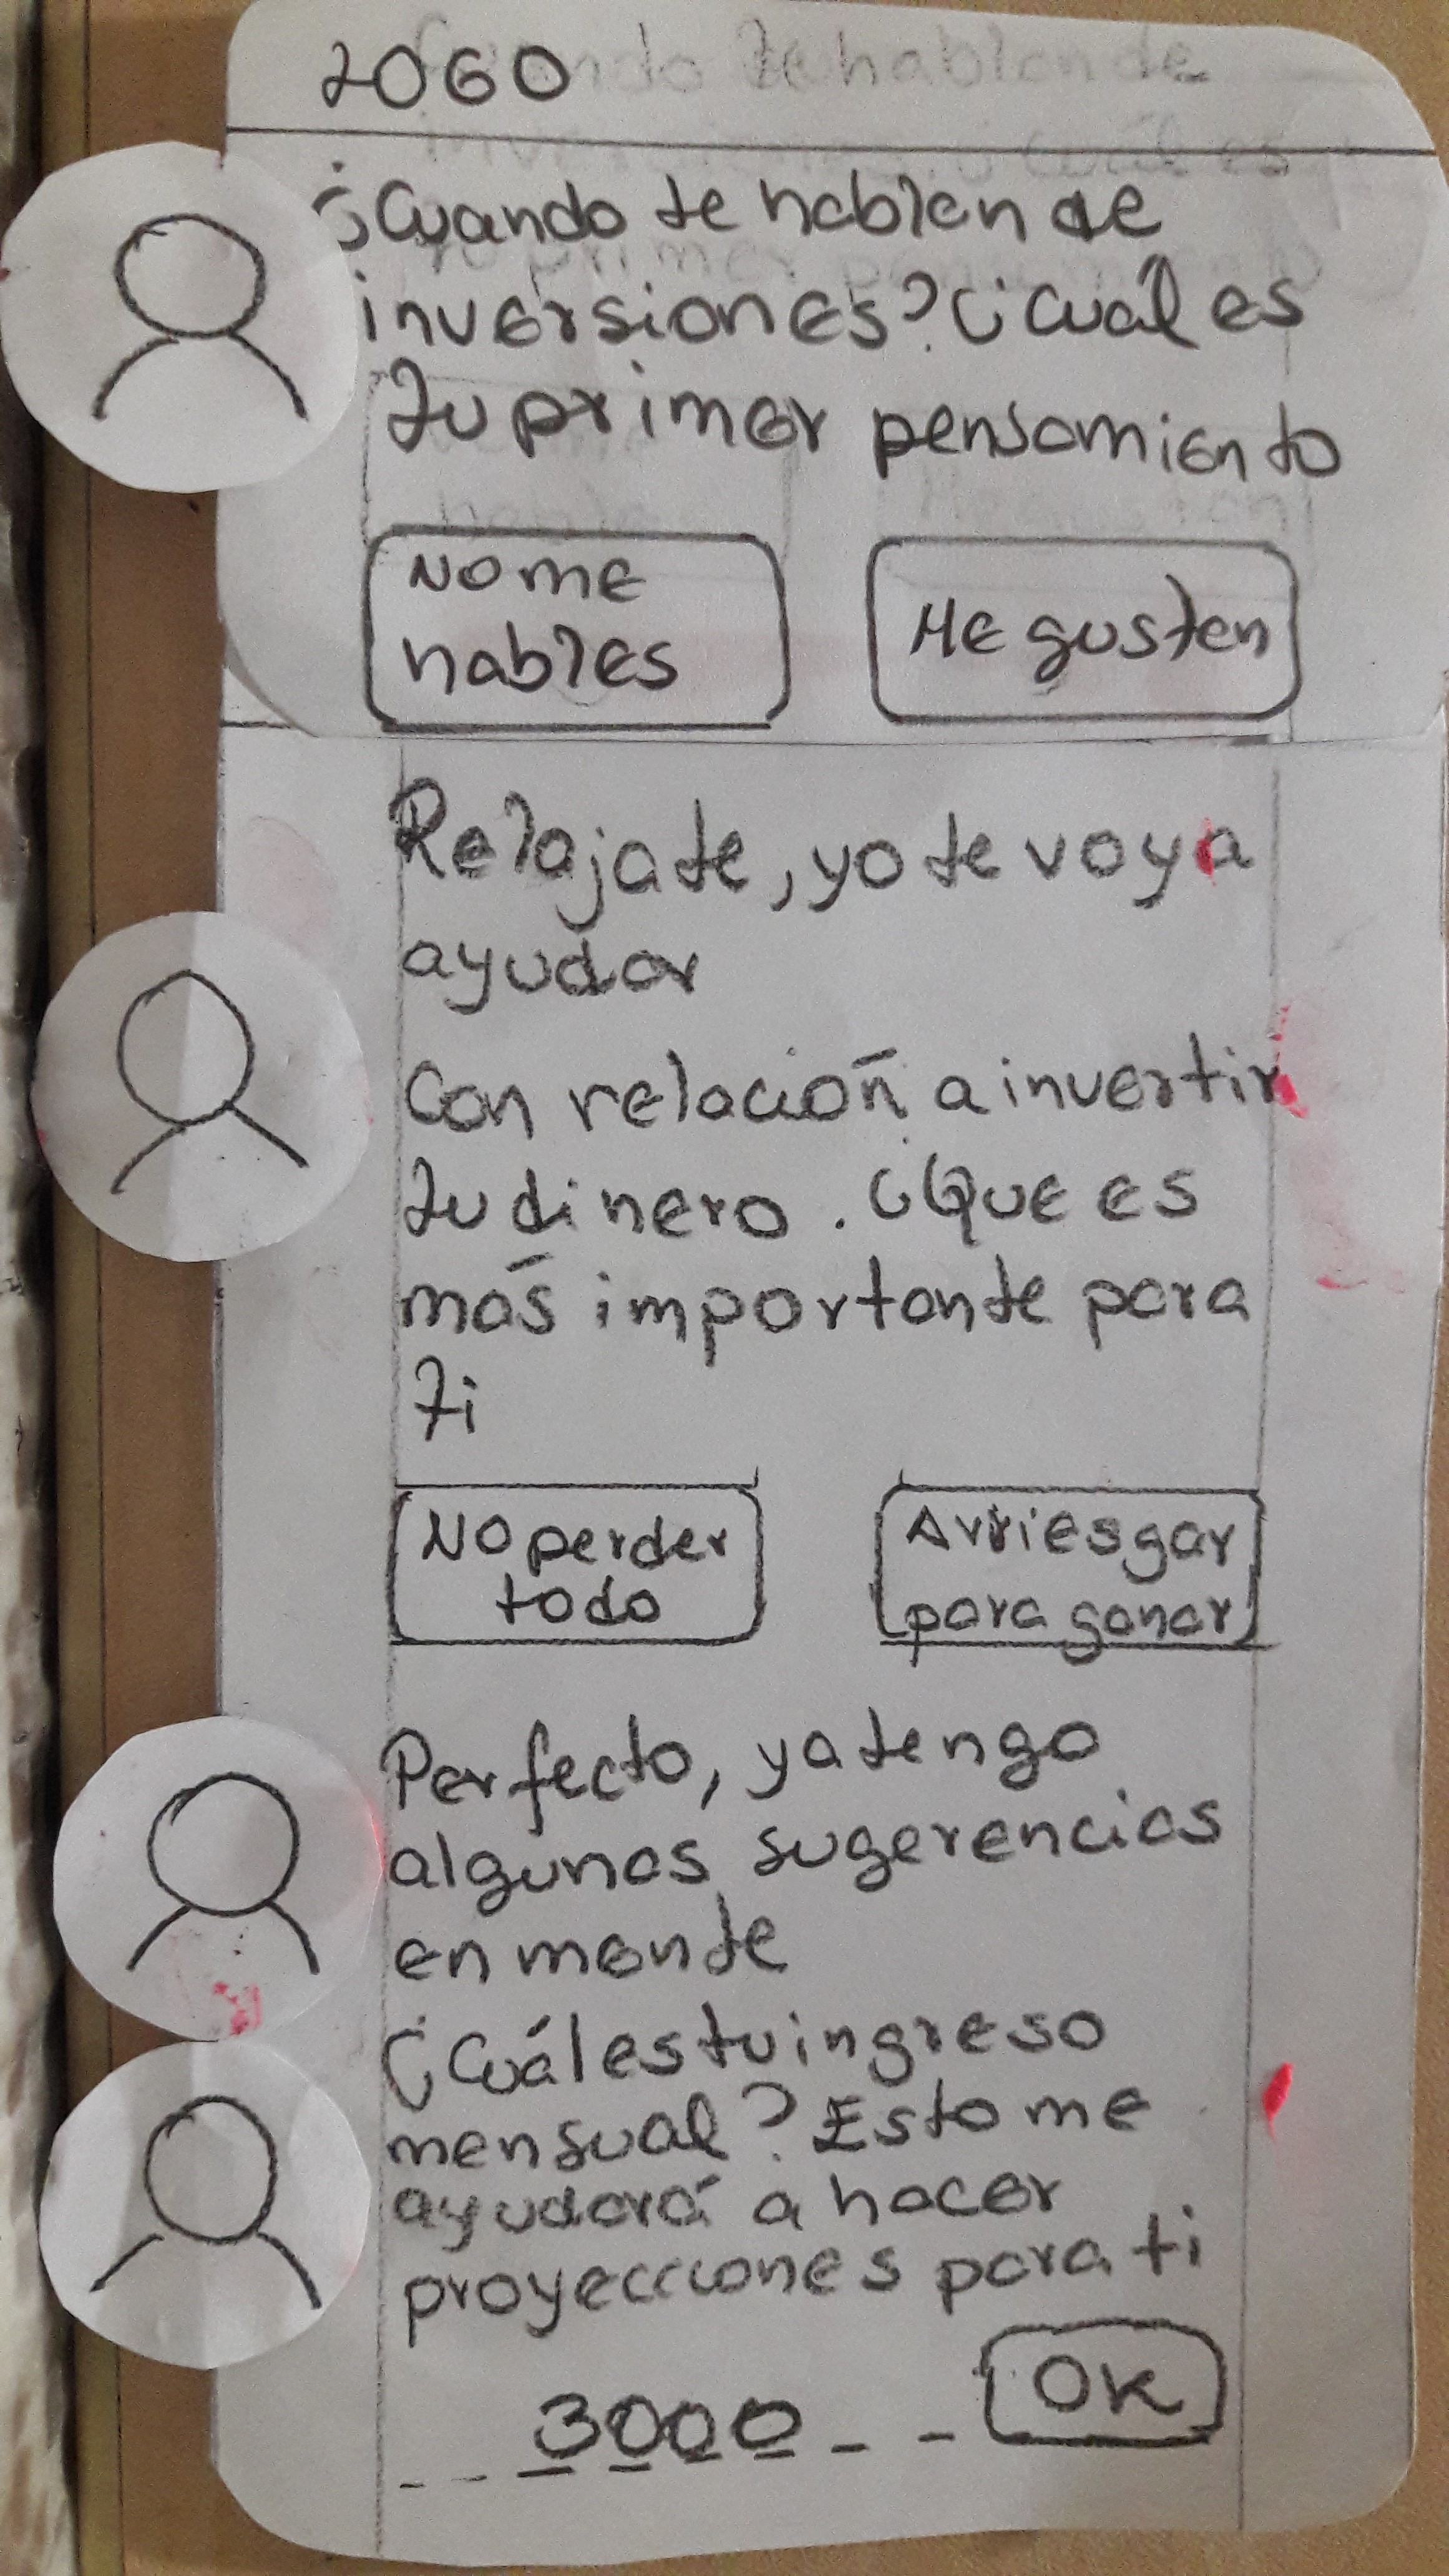 LOGO
¿Cuando te hablan de
inversiones? ¿Cuál es
tu primer pensamiento
No me
hables
Me gustan
Relajate, yo te voy a
ayudar
Con relación a invertir
tu dinero. ¿Que es
más importante para
ti
No perder
todo
Arriesgar
para ganar
Perfecto, ya tengo
algunas sugerencias
en mente
¿Cuál es tu ingreso
mensual? Esto me
ayudará a hacer
proyecciones para ti
3000
OK